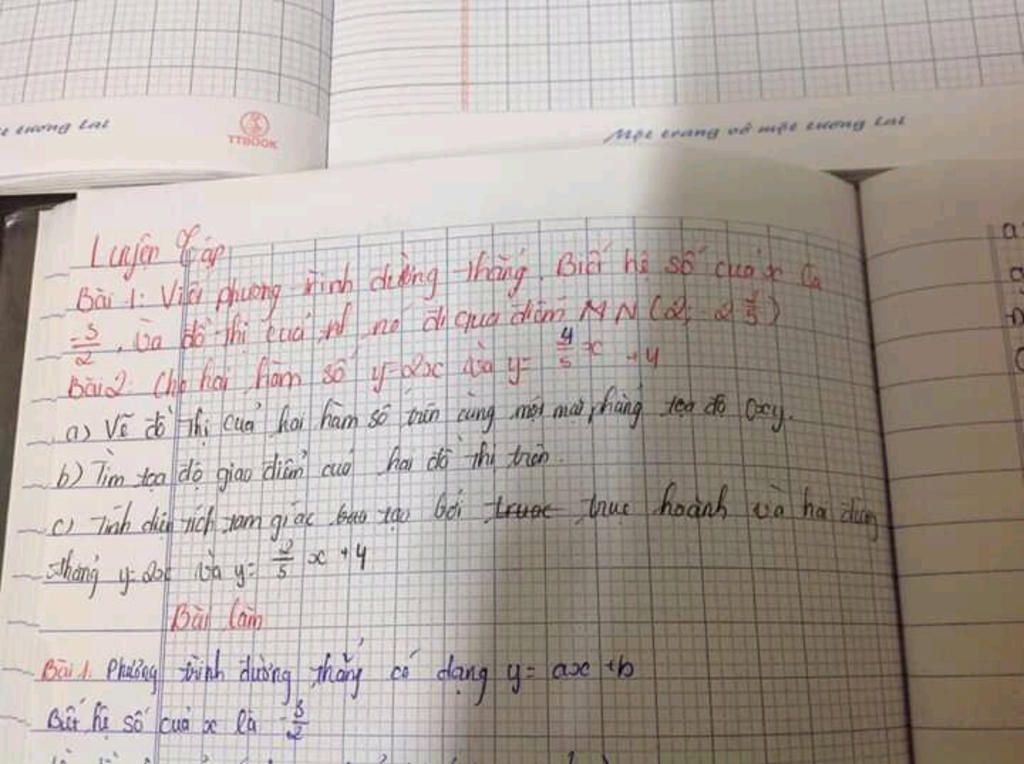 tương lai
TTBOOK
Một trang vở một tương lai
Luyện Tập
Bài 1: Viết phương trình đường thẳng. Biết hệ số của x là
-3/2. Và đồ thị của nó đi qua điểm MN (2;
Bài 2: Cho hai hàm số y=2x và y= 4/5 x +4
a) Vẽ đồ thị của hai hàm số trên cùng một mặt phẳng tọa độ Oxy.
b) Tìm tọa độ giao điểm của hai đồ thị trên.
c) Tính diện tích tam giác tạo bởi trục hoành và hai đường
thẳng y=2x và y= 2/5 x +4
Bài làm
Bài 1. Phương trình đường thẳng có dạng y= ax +b
Biết hệ số của x là -3/2